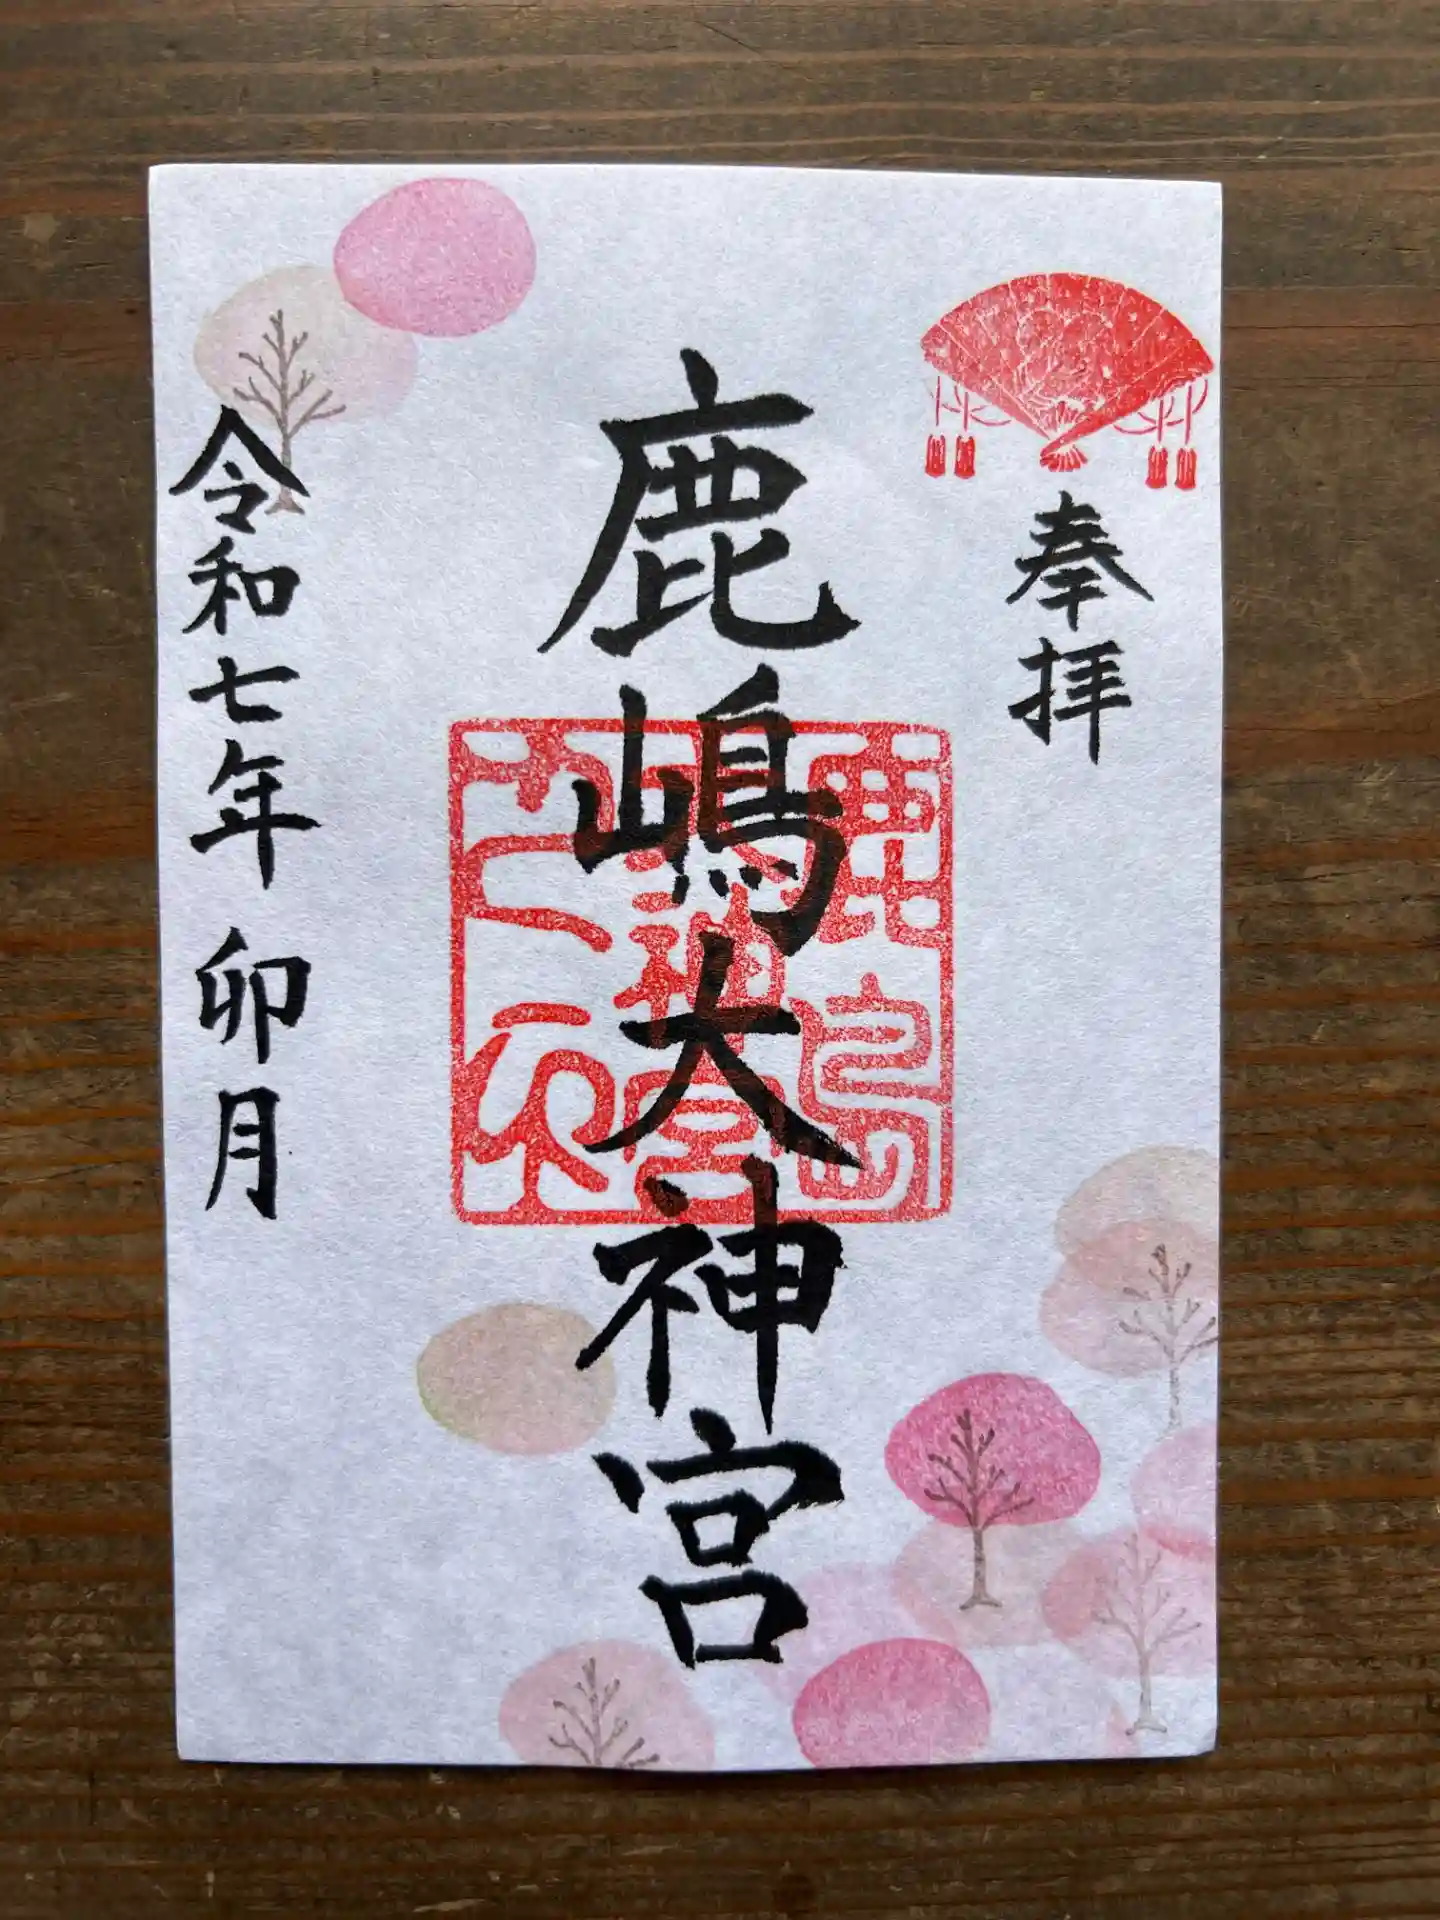 奉拝
鹿嶋大神宮
令和七年 卯月